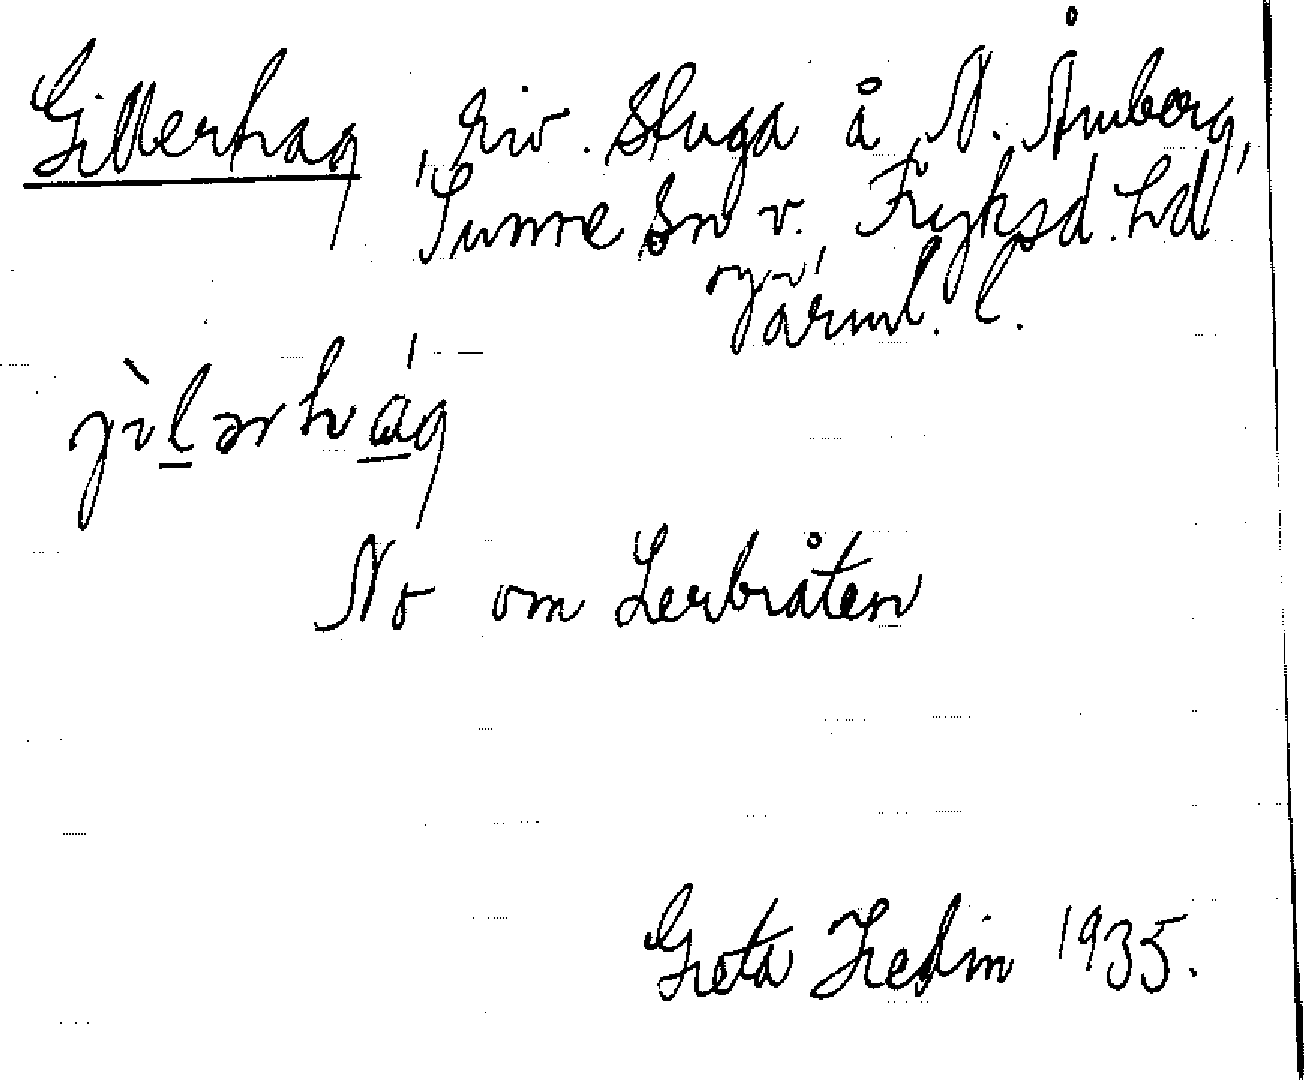 Gillerhag, riv. Stuga å N. Åmberg,
Sunne Sn v. Fryksd. hd,
Värml. l.
No om Lerbråten
Greta Hedin 1935.